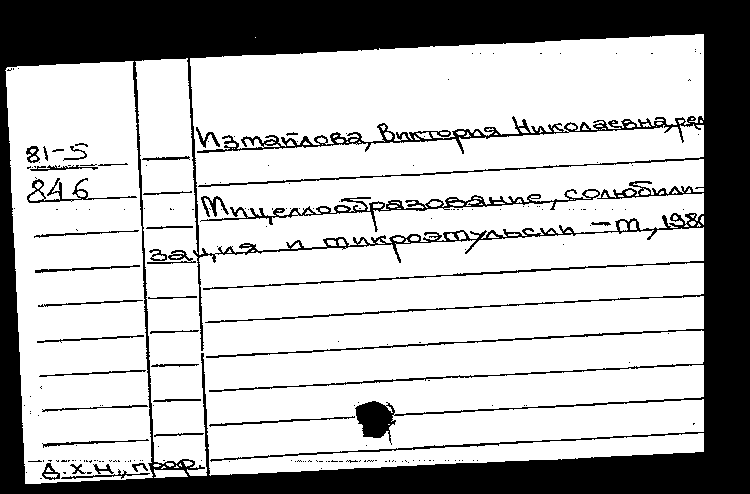 Измайлова, Виктория Николаевна, ред
81-5
846
Мицеллообразование, солюбили-
зация и микроэмульсии - М, 1980
д.х.н., проф.